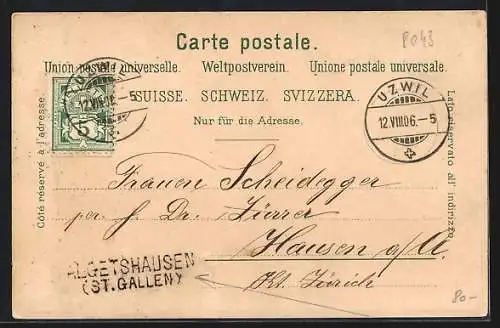 Carte postale.
P043
Union postale universelle. Weltpostverein. Unione postale universale.
SUISSE. SCHWEIZ. SVIZZERA.
Nur für die Adresse.
UZWIL
12.VIII.06.-5
5
UZWIL
12.VIII.06.-5
Côté réservé à l'adresse.
Lato riservato all' indirizzo.
Frauen Scheidegger
per f. Dr. Fürrer
Hausen a/A.
Kt. Zürich
ALGETSHAUSEN
(ST. GALLEN)
80-